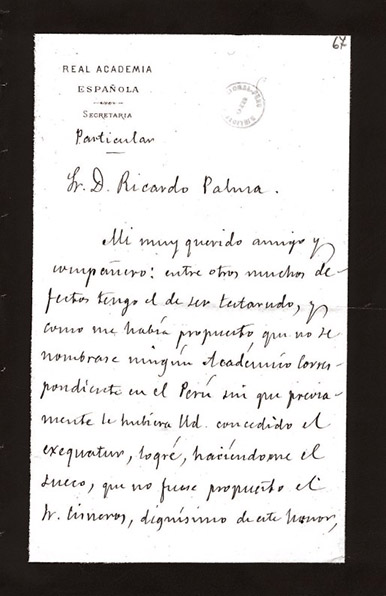 67
REAL ACADEMIA
ESPAÑOLA
SECRETARIA
Particular
Sr. D. Ricardo Palma.
Mi muy querido amigo y
compañero: entre otros muchos de-
fectos tengo el de ser testarudo, y
como me había propuesto que no se
nombrase ningún Académico Corres-
pondiente en el Perú sin que previa-
mente le hubiera Ud. concedido el
exequatur, logré, haciéndome el
sueco, que no fuese propuesto el
Sr. Cisneros, dignísimo de este honor,